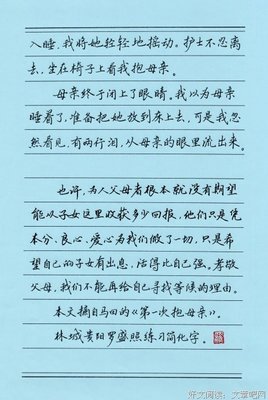 入睡,我将她轻轻地摇动。护士不忍离
去,坐在椅子上看我抱母亲。
母亲终于闭上了眼睛。我以为母亲
睡着了,准备把她放到床上去,可是我忽
然看见,有两行泪,从母亲的眼里流出来。
也许,为人父母者根本就没有期望
能从子女这里收获多少回报,他们只是凭
本分、良心、爱心为我们做了一切,只是希
望自己的子女有出息,活得比自己强。孝敬
父母,我们不能再给自己寻找等候的理由。
本文摘自马田的《第一次抱母亲》。
林城贵阳罗盛照练习简化字。
好文阅读:文章吧网